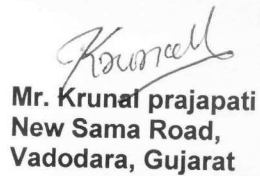 Krunal
Mr. Krunal prajapati
New Sama Road,
Vadodara, Gujarat